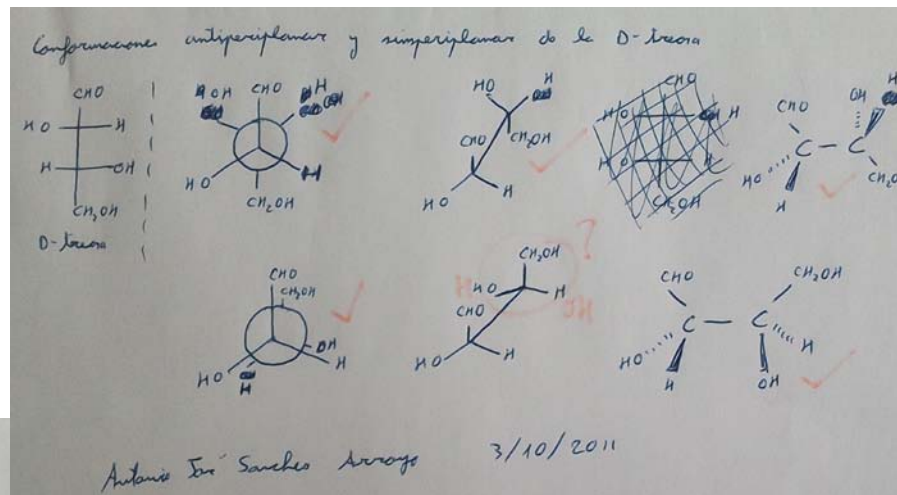 Conformaciones antiperiplanar y sinperiplanar de la D-treosa
CHO
HO H
H OH
CH2OH
D-treosa
OH CHO H OH
HO H
CH2OH
HO H
CHO CH2OH
HO H
CHO
HO OH H
CH2OH
CHO OH H
C C
HO CH2O
H
CHO
CH2OH
OH
HO H
H
CH2OH
HO H
CHO
HO H
?
H
HO
CHO CH2OH
C C
HO H
H OH
Antonio José Sanches Arroyo 3/10/2011